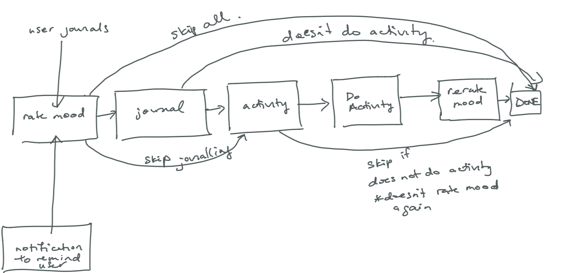 user journals
skip all.
doesn't do activity.
rate mood
journal
activity
Do
Activity
rerate
mood
DONE
skip journalling
skip if
does not do activity
*doesn't rate mood
again
notification
to remind
user